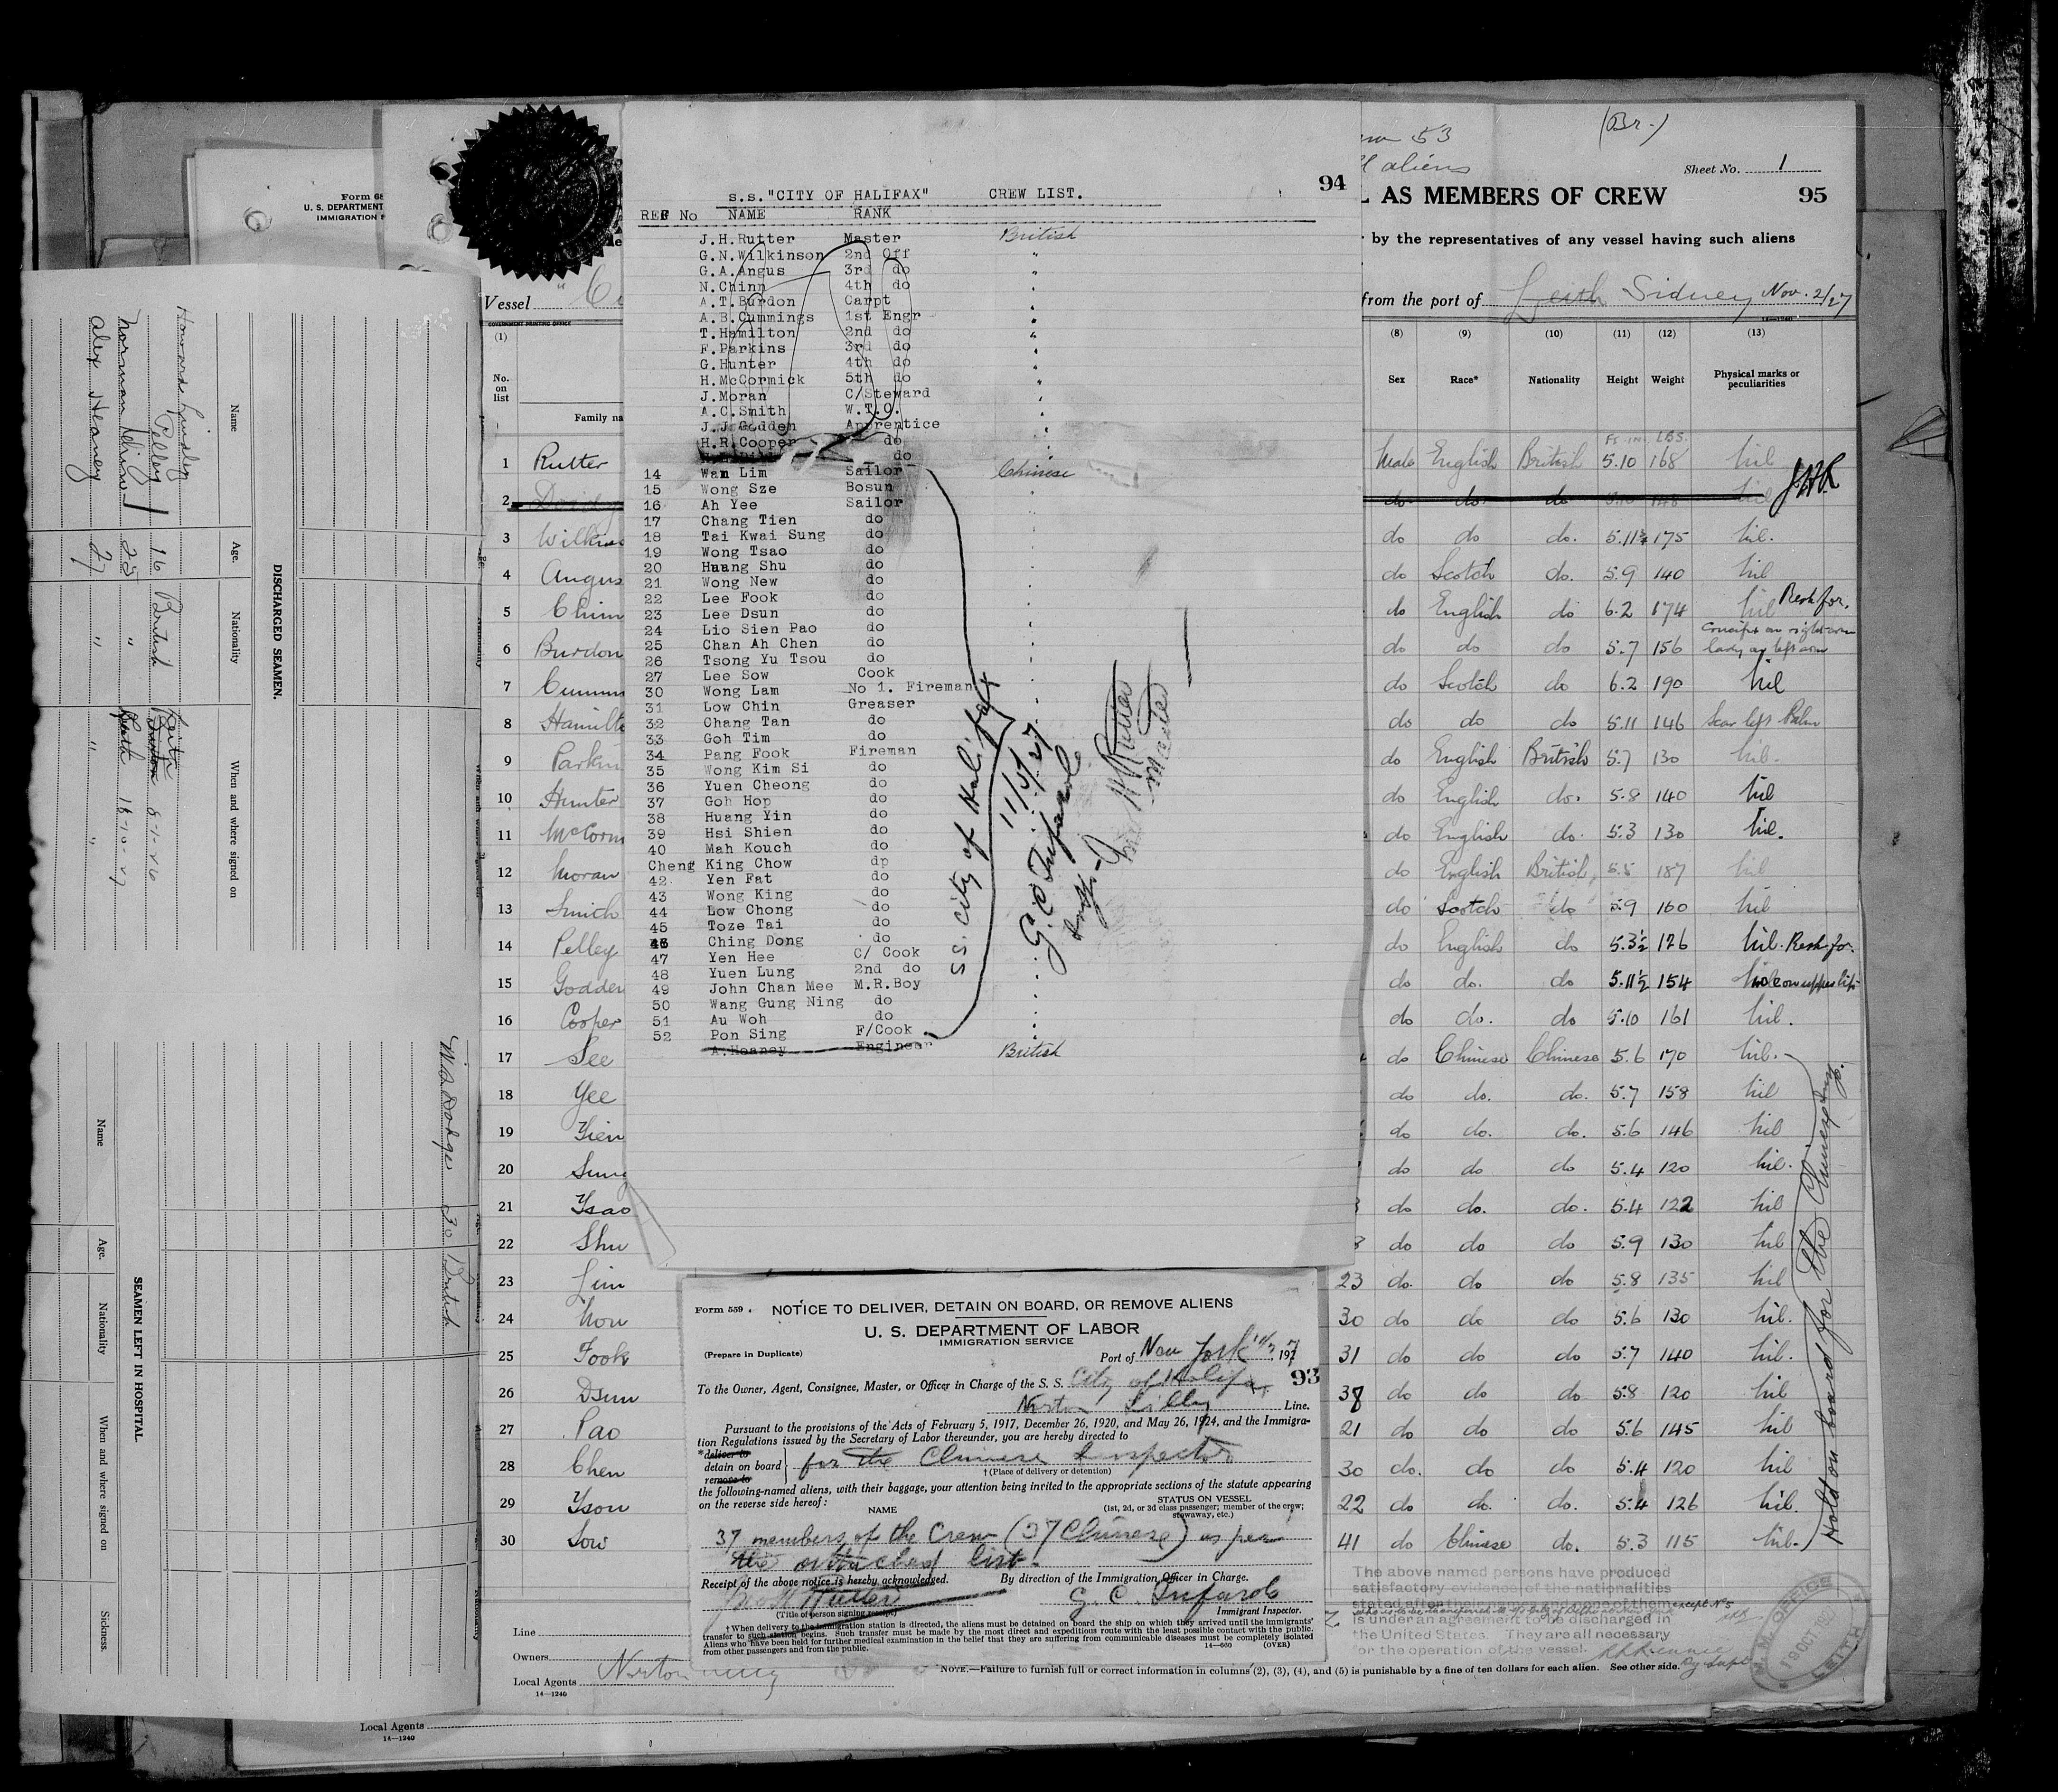 Form 68
U. S. DEPARTMENT
IMMIGRATION
DISCHARGED SEAMEN.
Name
Age.
Nationality
When and where signed on
Pelley 16 British Leith 8-1-26
Norman Chinn 25 " Leith 18-10-27
Alex Heaney 27 " "
SEAMEN LEFT IN HOSPITAL.
Name
Age.
Nationality
When and where signed on
Sickness.
30 British
94
s.s."CITY OF HALIFAX" CREW LIST.
REF No NAME RANK
J.H.Rutter Master British
G.N.Wilkinson 2nd Off "
G.A.Angus 3rd do "
N.Chinn 4th do "
A.T.Burdon Carpt "
A.B.Cummings 1st Engr "
T.Hamilton 2nd do "
F.Parkins 3rd do "
G.Hunter 4th do "
H.McCormick 5th do "
J.Moran C/Steward "
A.C.Smith W.T.O. "
J.J.Godden Apprentice "
H.R.Cooper do "
do
14 Wan Lim Sailor Chinese
15 Wong Sze Bosun
16 Ah Yee Sailor
17 Chang Tien do
18 Tai Kwai Sung do
19 Wong Tsao do
20 Huang Shu do
21 Wong New do
22 Lee Fook do
23 Lee Dsun do
24 Lio Sien Pao do
25 Chan Ah Chen do
26 Tsong Yu Tsou do
27 Lee Sow Cook
30 Wong Lam No 1. Fireman
31 Low Chin Greaser
32 Chang Tan do
33 Goh Tim do
34 Pang Fook Fireman
35 Wong Kim Si do
36 Yuen Cheong do
37 Goh Hop do
38 Huang Yin do
39 Hsi Shien do
40 Mah Kouch do
Cheng King Chow dp
42 Yen Fat do
43 Wong King do
44 Low Chong do
45 Toze Tai do
46 Ching Dong do
47 Yen Hee C/ Cook
48 Yuen Lung 2nd do
49 John Chan Mee M.R.Boy
50 Wang Gung Ning do
51 Au Woh do
52 Pon Sing F/Cook
A.Heaney Engineer British
SS. City of Halifax
11/3/27
G. C. Tufarolo
Insp.
Master
Form 559. NOTICE TO DELIVER, DETAIN ON BOARD, OR REMOVE ALIENS
U. S. DEPARTMENT OF LABOR
IMMIGRATION SERVICE
(Prepare in Duplicate)
Port of New York 11/3, 1927
93
To the Owner, Agent, Consignee, Master, or Officer in Charge of the S. S. City of Halifax
Norton Lilly Line.
Pursuant to the provisions of the Acts of February 5, 1917, December 26, 1920, and May 26, 1924, and the Immigra-
tion Regulations issued by the Secretary of Labor thereunder, you are hereby directed to
*deliver to
detain on board for the Chinese Inspector
remove to
† (Place of delivery or detention)
the following-named aliens, with their baggage, your attention being invited to the appropriate sections of the statute appearing
on the reverse side hereof:
NAME
STATUS ON VESSEL
(1st, 2d, or 3d class passenger; member of the crew;
stowaway, etc.)
37 members of the Crew (37 Chinese) as per
the attached list.
Receipt of the above notice is hereby acknowledged.
By direction of the Immigration Officer in Charge.
(Title of person signing receipt)
Immigrant Inspector.
† When delivery to the immigration station is directed, the aliens must be detained on board the ship on which they arrived until the immigrants'
transfer to such station begins. Such transfer must be made by the most direct and expeditious route with the least possible contact with the public.
Aliens who have been held for further medical examination in the belief that they are suffering from communicable diseases must be completely isolated
from other passengers and from the public.
14—660 (OVER)
(Br.)
53
aliens
Sheet No. 1
AS MEMBERS OF CREW 95
by the representatives of any vessel having such aliens
Vessel
GOVERNMENT PRINTING OFFICE
from the port of Leith Sidney Nov. 2/27
14—1240
(1) (8) (9) (10) (11) (12) (13)
No. on list
Family na
Sex Race* Nationality Height Weight Physical marks or peculiarities
Ft. in. LBS.
1 Rutter Male English British 5.10 168 Nil
JHR
2 do do do
3 Wilkins do do do. 5.11½ 175 Nil.
4 Angus do Scotch do. 5.9 140 Nil
5 Chinn do English do 6.2 174 Nil
6 Burdon do do do 5.7 156 Crucifix on right arm lady on left arm
7 Cummin do Scotch do 6.2 190 Nil
8 Hamilto do do do 5.11 146 Scar left Palm
9 Parkin do English British 5.7 130 Nil.
10 Hunter do English do. 5.8 140 Nil
11 McCorm do English do. 5.3 130 Nil.
12 Moran do English British 5.5 187 Nil
13 Smith do Scotch do 5.9 160 Nil
14 Pelley do English do 5.3½ 126 Nil.
15 Godden do do. do 5.11½ 154 upper lip
16 Cooper do do. do 5.10 161 Nil.
17 See do Chinese Chinese 5.6 170 Nil.
18 Yee do do. do. 5.7 158 Nil
19 Tien do do. do. 5.6 146 Nil
20 Sung do do do 5.4 120 Nil.
21 Tsao do do. do. 5.4 122 Nil
22 Shu do do do 5.9 130 Nil
23 Lim 23 do. do do 5.8 135 Nil
24 Nou 30 do do do 5.6 130 Nil.
25 Fook 31 do do do 5.7 140 Nil.
26 Dsun 38 do do do 5.8 120 Nil
27 Pao 21 do do do 5.6 145 Nil
28 Chen 30 do. do do 5.4 120 Nil
29 Tsou 22 do do. do. 5.4 126 Nil.
30 Sow 41 do Chinese do. 5.3 115 Nil.
Hold on board for the Chinese Insp.
The above named persons have produced
satisfactory evidence of the nationalities
stated after their names and none of them except No 5
is under an agreement to be discharged in
the United States. They are all necessary
for the operation of the vessel.
M. M. OFFICE
19 OCT
LEITH
Line
Owners
Local Agents Norton Lilly
14—1240
NOTE.—Failure to furnish full or correct information in columns (2), (3), (4), and (5) is punishable by a fine of ten dollars for each alien. See other side.
Local Agents
14—1240